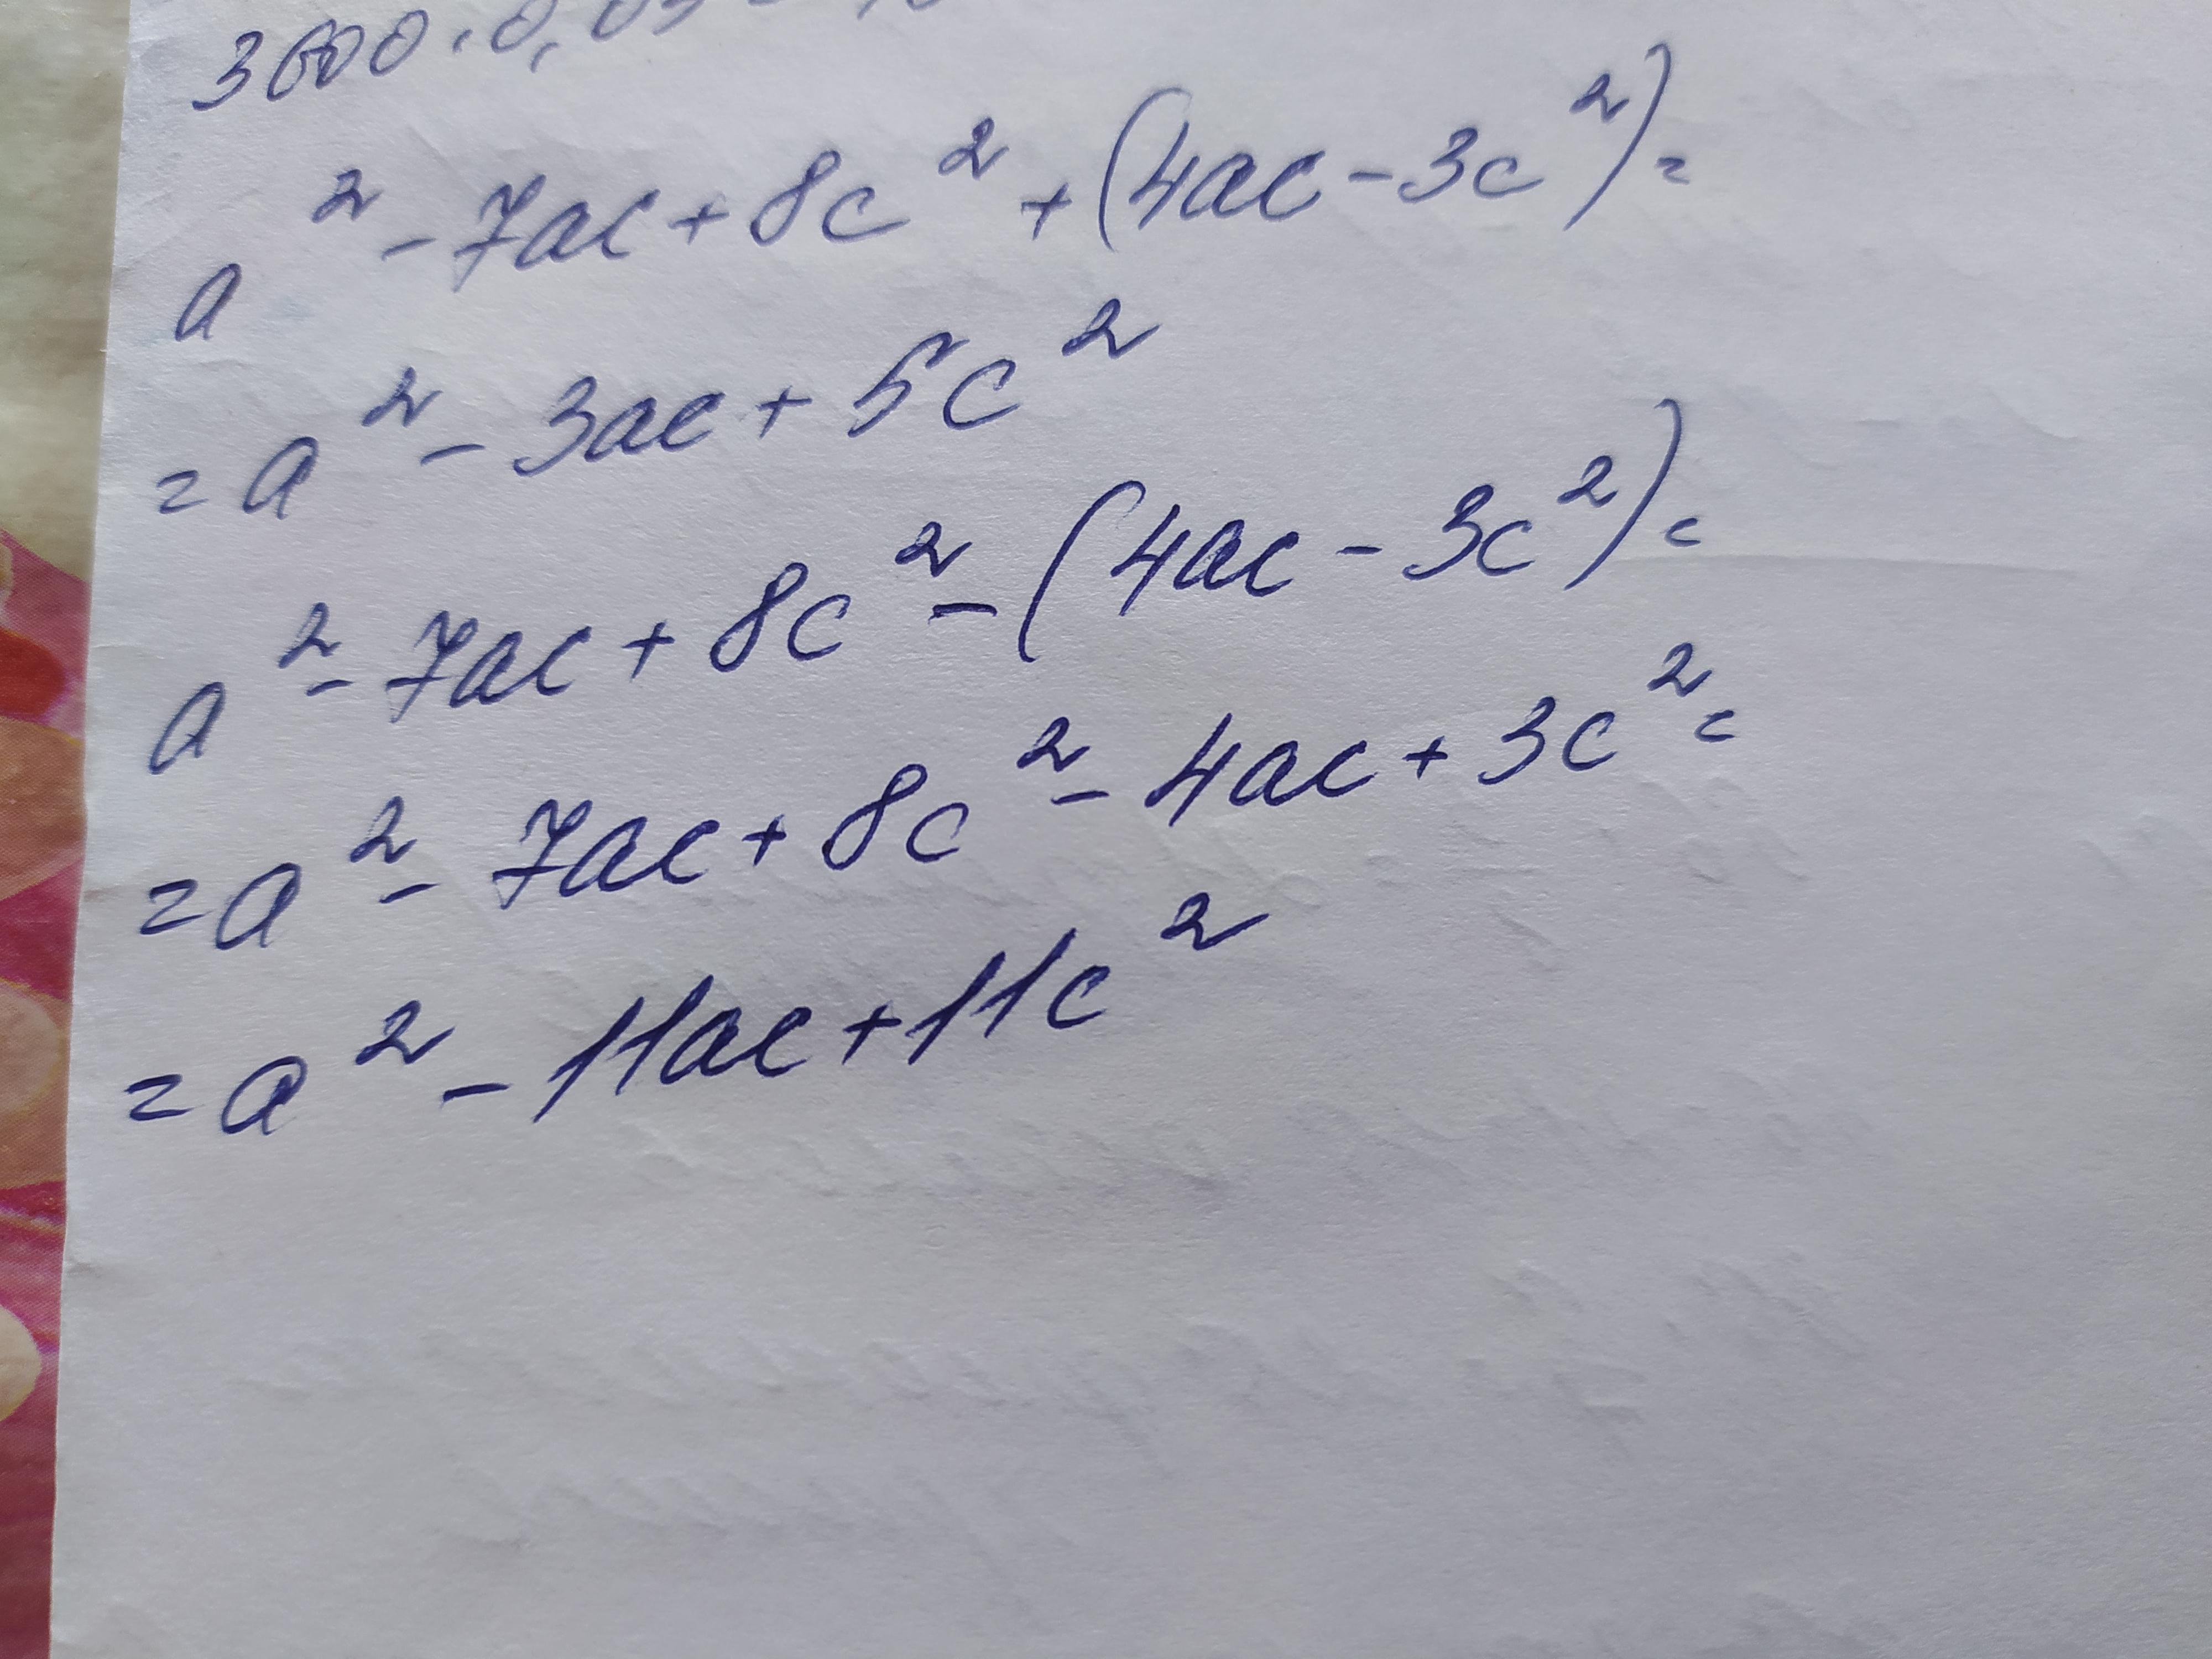 3600 · 0,03
a² - 7ac + 8c² + (4ac - 3c²) =
= a² - 3ac + 5c²
a² - 7ac + 8c² - (4ac - 3c²) =
= a² - 7ac + 8c² - 4ac + 3c² =
= a² - 11ac + 11c²